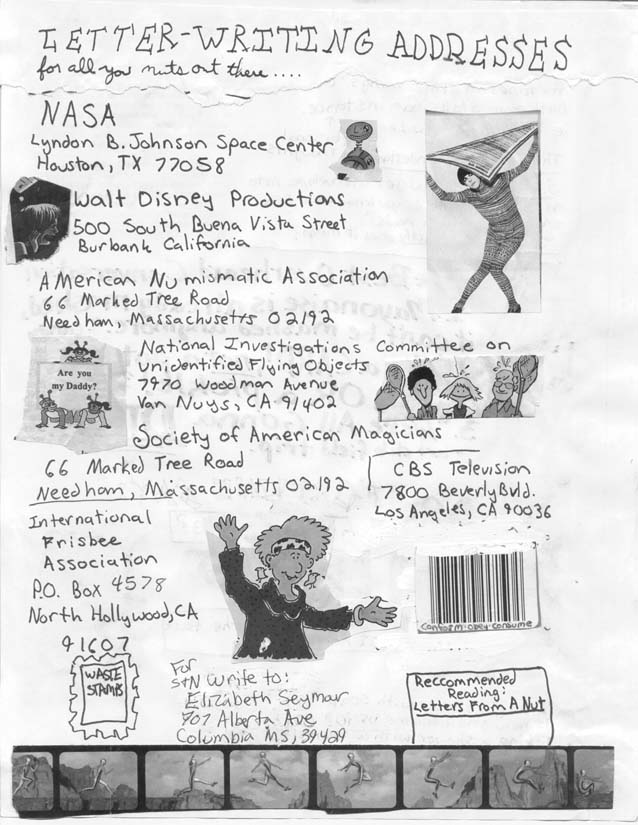 LETTER-WRITING ADDRESSES
for all you nuts out there....
NASA
Lyndon B. Johnson Space Center
Houston, TX 77058
Walt Disney Productions
500 South Buena Vista Street
Burbank California
American Numismatic Association
66 Marked Tree Road
Needham, Massachusetts 02192
Are you
my Daddy?
National Investigations Committee on
Unidentified Flying Objects
7970 Woodman Avenue
Van Nuys, CA 91402
Society of American Magicians
66 Marked Tree Road
Needham, Massachusetts 02192
CBS Television
7800 Beverly Bvld.
Los Angeles, CA 90036
International
Frisbee
Association
P.O. Box 4578
North Hollywood, CA
91607
conform-obey-consume
WASTE
STAMPS
For
S+N write to:
Elizabeth Seymour
707 Alberta Ave
Columbia MS, 39429
Reccommended
Reading:
Letters From A Nut